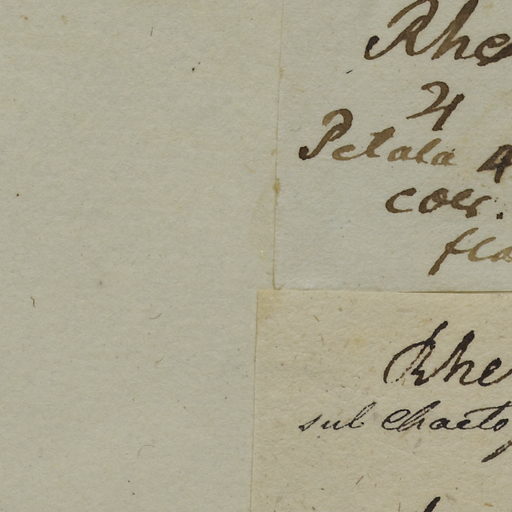 Rhe
4
Petala 4
coer.
fla
Rhe
sub Chaeto